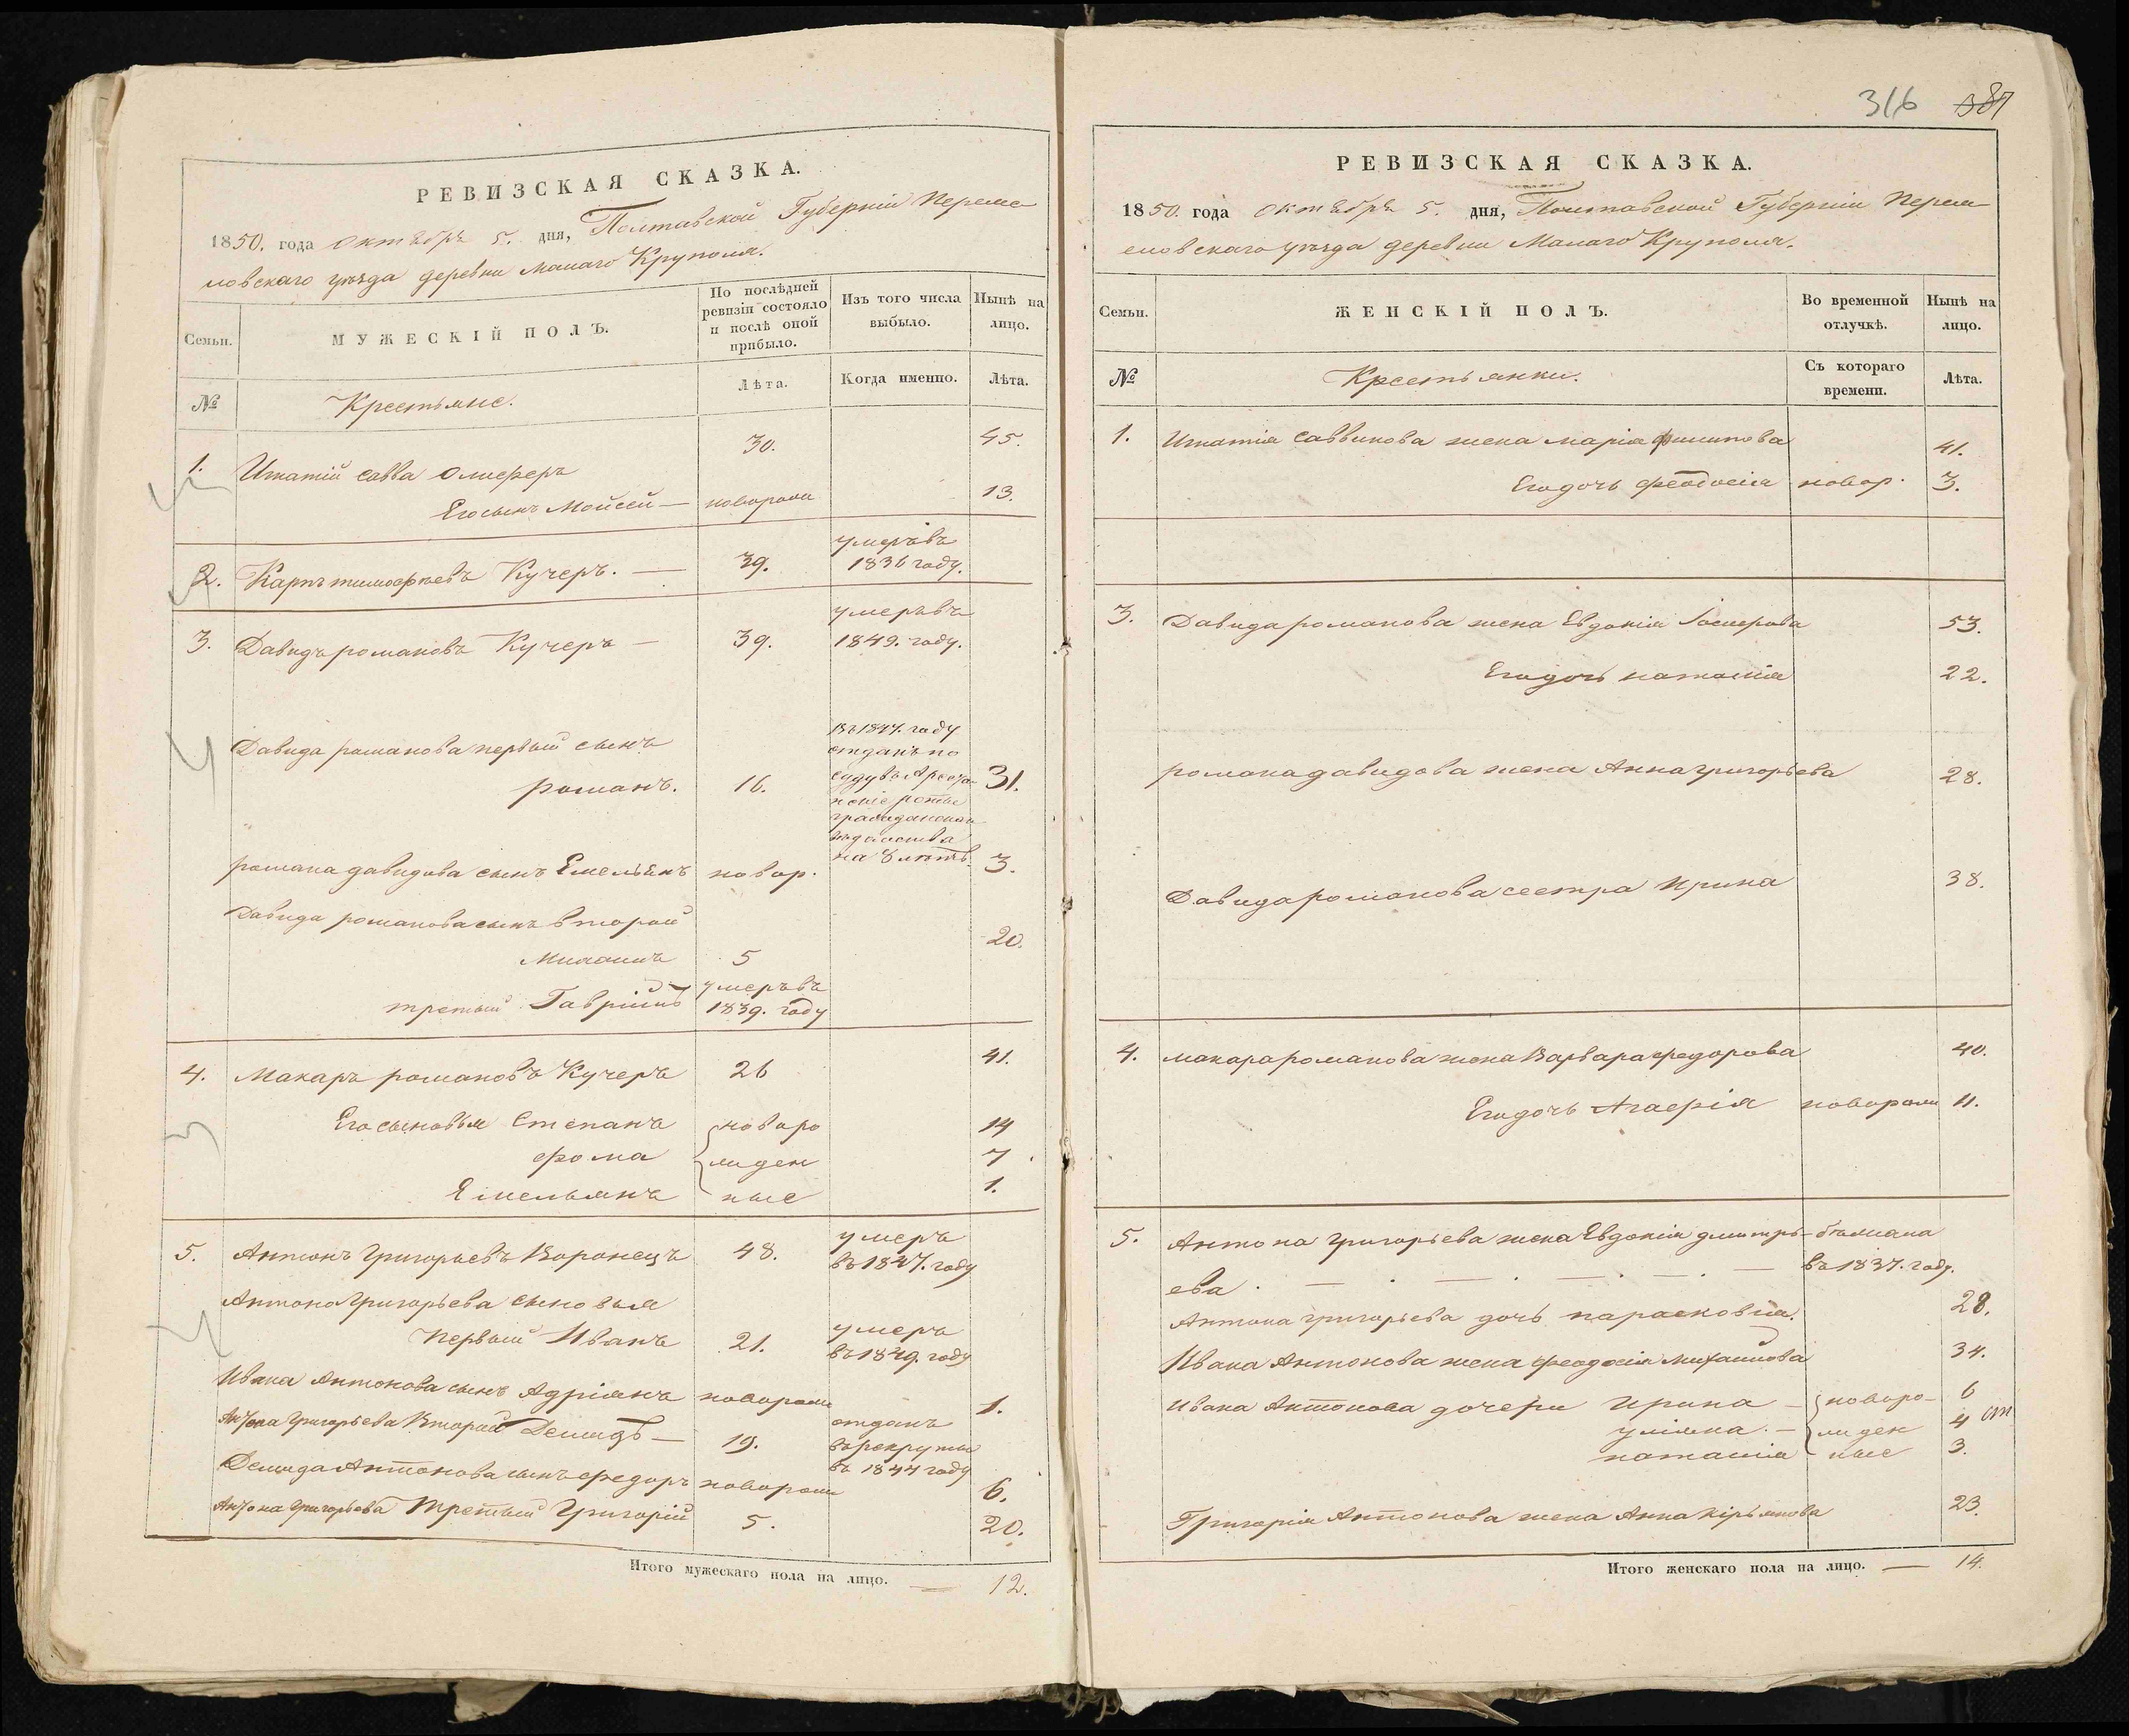 РЕВИЗСКАЯ СКАЗКА.
1850. года октября 5. дня, Полтавской Губерніи Переяс
ловскаго уѣзда деревни Малаго Круполя.
Семьи.
МУЖЕСКІЙ ПОЛЪ.
По послѣдней ревизіи состояло и послѣ оной прибыло.
Изъ того числа выбыло.
Нынѣ на лицо.
№
Крестьяне.
Лѣта.
Когда именно.
Лѣта.
1. Игнатій Савва Олиферъ 30. 45.
Его сынъ Мойсей — новорожд 13.
2. Карпъ тимофѣевъ Кучеръ. — 39. умеръ въ
1836 году.
3. Давидъ романовъ Кучеръ — 39. умеръ въ
1849. году.
Давида романова первый сынъ
романъ. 16. Въ 1847. году
отданъ по
суду въ Арестан
нскіе роты
гражданскаго
вѣдомства
на 8 лѣтъ. 31.
романа давидова сынъ Емельянъ новор. 3.
Давида романова сынъ второй
Михаилъ 5 20.
третый Гавріилъ умеръ въ
1839. году
4. Макаръ романовъ Кучеръ 26 41.
Его сыновья Степанъ новоро 14
фома жден 7
Емельянъ ные 1.
5. Антонъ Григорьевъ Воронецъ 48. умеръ
въ 1847. году
Антона Григорьева сыновья
первый Иванъ 21. умеръ
въ 1849. году
Ивана Антонова сынъ Адріянъ новорожд 1.
Антона Григорьева Второй Демидъ — 19. отданъ
въ рекруты
въ 1844 году
Демида Антонова сынъ федоръ новорожд 6.
Антона Григорьева Третый Григорій 5. 20.
Итого мужескаго пола на лицо. — 12.
316 387
РЕВИЗСКАЯ СКАЗКА.
1850. года октября 5. дня, Полтавской Губерніи Перея
словскаго уѣзда деревни Малаго Круполя.
Семьи.
ЖЕНСКІЙ ПОЛЪ.
Во временной отлучкѣ.
Нынѣ на лицо.
№
Крестьянки.
Съ котораго времени.
Лѣта.
1. Игнатія Саввинова жена марія филипова 41.
Его дочь феодосія новор. 3.
3. Давида романова жена Евдокія 53.
Его дочь наталія 22.
романа давидова жена Анна григорьева 28.
Давида романова сестра Ирина 38.
4. макара романова жена Варвара федорова 40.
Его дочь Агафія новорожд 11.
5. Антона Григорьева жена Евдокія дмитрь- бѣжала
ева въ 1837. году.
Антона григорьева дочь парасковія. 28.
Ивана Антонова жена феодосія михайлова 34.
Ивана Антонова дочери Ирина — новоро- 6
уліяна. — жден 4
наталія ные 3.
Григорія Антонова жена Анна кірьянова 23.
Итого женскаго пола на лицо. — 14.